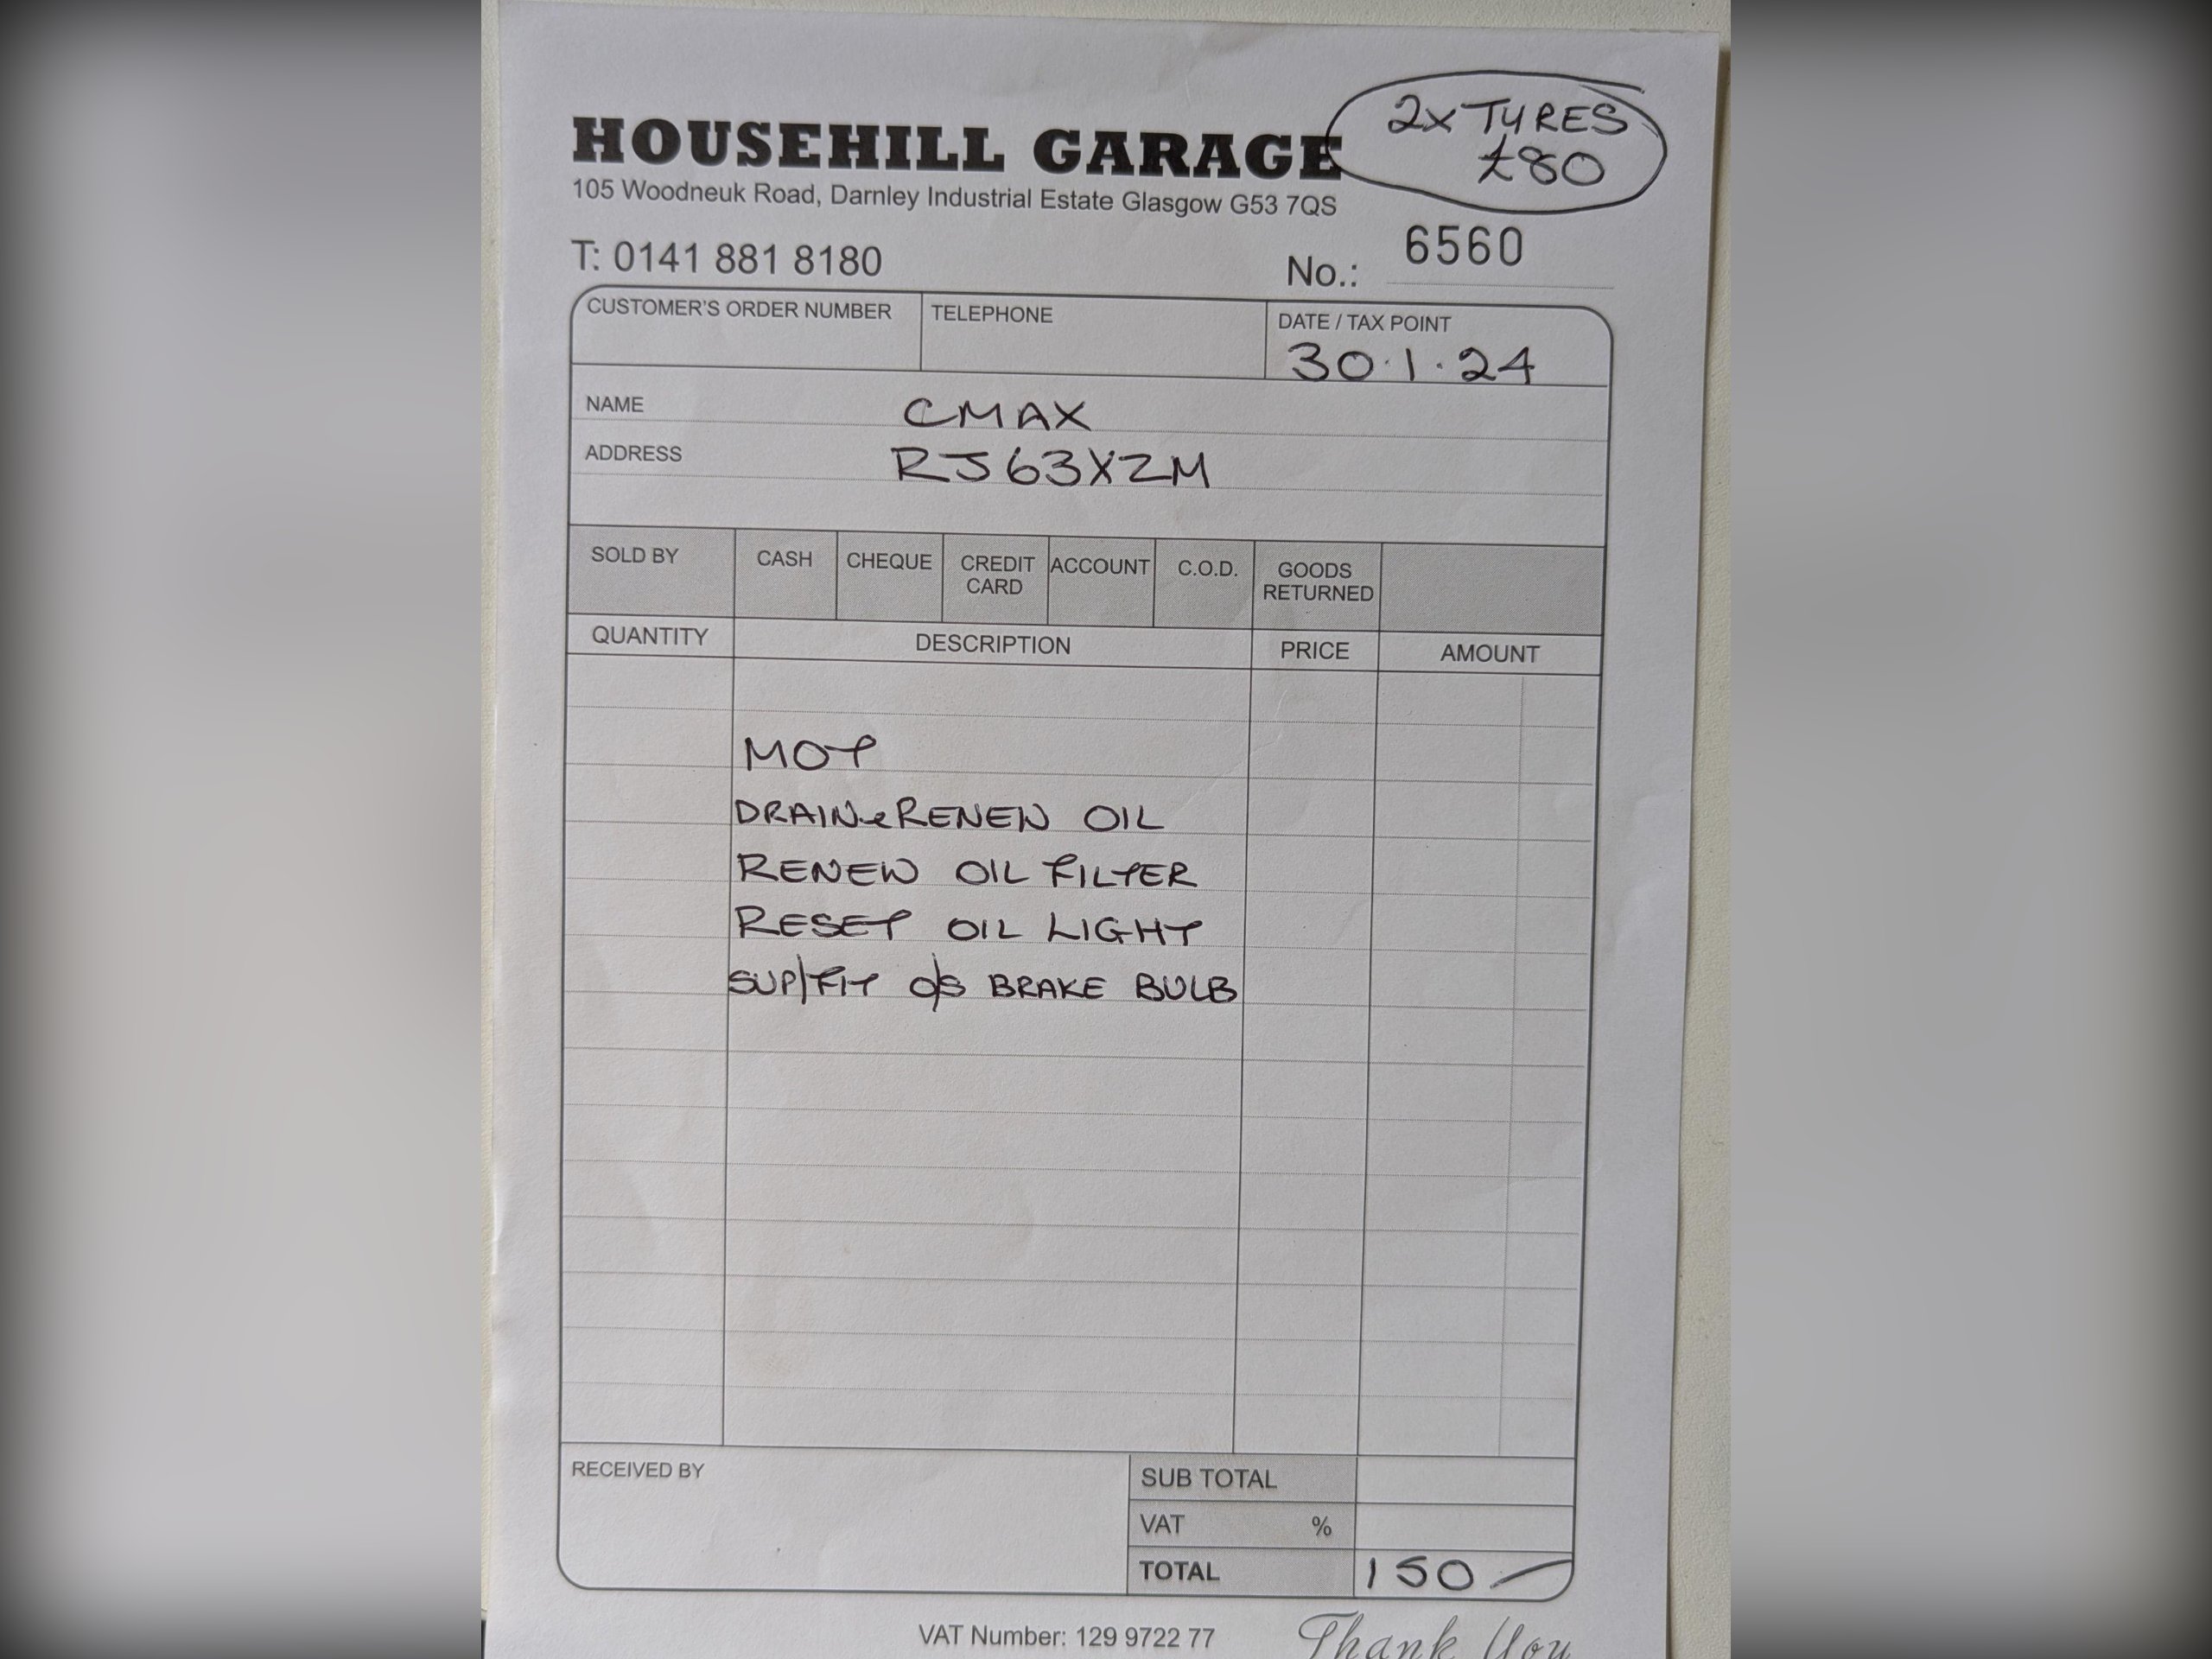 2x TYRES
£80
HOUSEHILL GARAGE
105 Woodneuk Road, Darnley Industrial Estate Glasgow G53 7QS
T: 0141 881 8180
No.: 6560
CUSTOMER'S ORDER NUMBER TELEPHONE DATE / TAX POINT
30.1.24
NAME CMAX
ADDRESS RJ63XZM
SOLD BY CASH CHEQUE CREDIT CARD ACCOUNT C.O.D. GOODS RETURNED
QUANTITY DESCRIPTION PRICE AMOUNT
MOT
DRAIN & RENEW OIL
RENEW OIL FILTER
RESET OIL LIGHT
SUP/FIT O/S BRAKE BULB
RECEIVED BY
SUB TOTAL
VAT %
TOTAL 150 —
VAT Number: 129 9722 77
Thank You